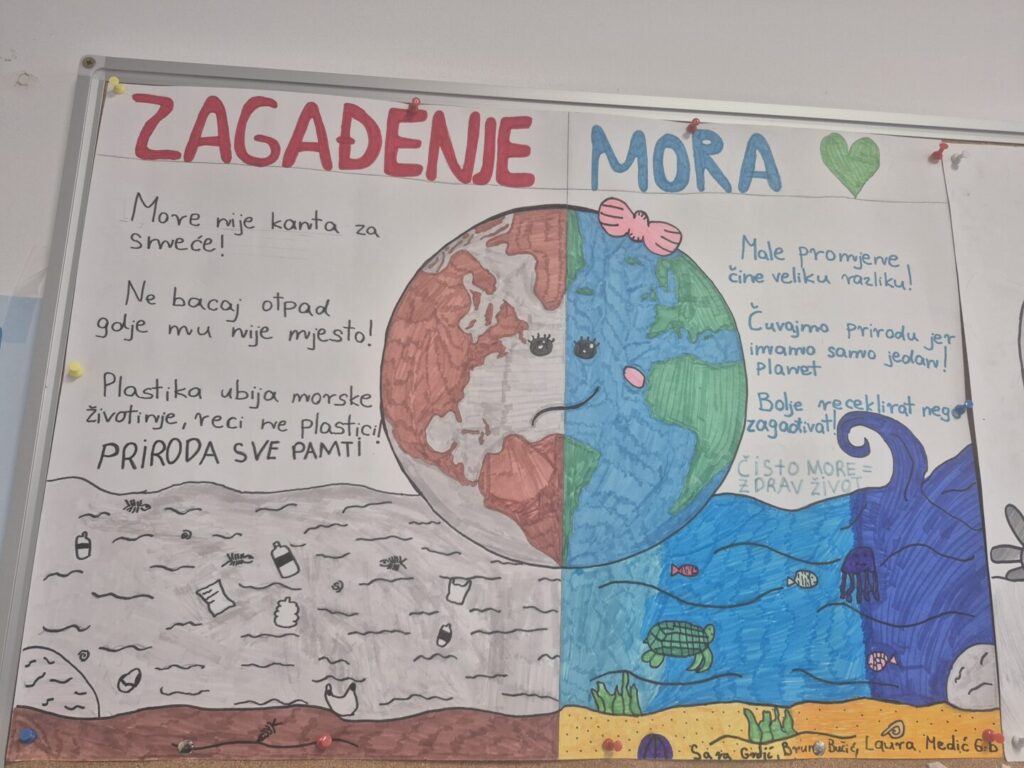 ZAGAĐENJE MORA
More nije kanta za
smeće!
Ne bacaj otpad
gdje mu nije mjesto!
Plastika ubija morske
životinje, reci ne plastici!
PRIRODA SVE PAMTI
Male promjene
čine veliku razliku!
Čuvajmo prirodu jer
imamo samo jedan!
planet
Bolje receklirat nego
zagađivat!
ČISTO MORE =
ZDRAV ŽIVOT
Sara Laura Medić 6.b